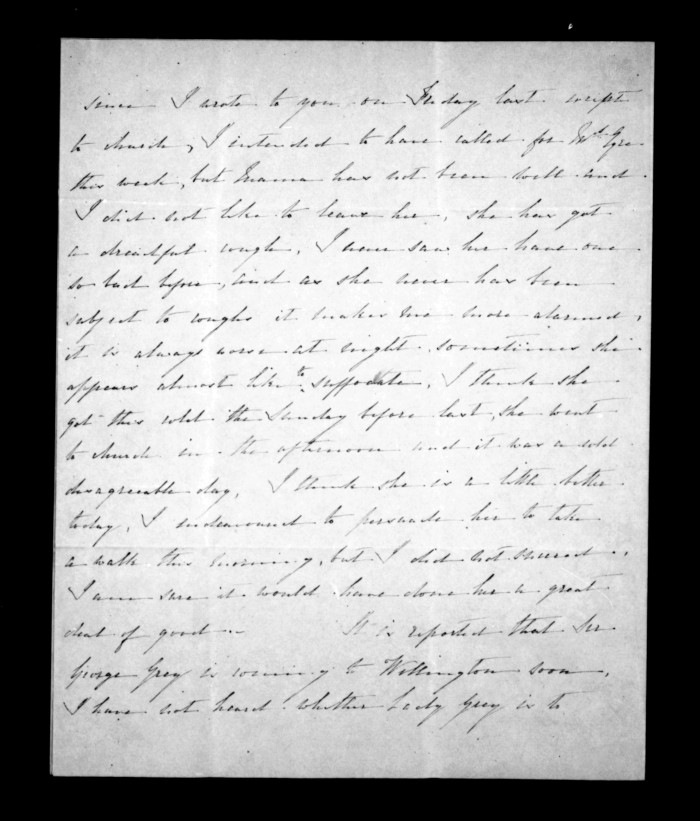 since I wrote to you on Friday last except
to church, I intended to have called for Mrs. Eyre
this week, but Mama has not been well and
I did not like to leave her, she has got
a dreadful cough, I never saw her have one
so bad before, and as she never has been
subject to coughs it makes me more alarmed,
it is always worse at night sometimes she
appears almost like to suffocate, I think she
got this cold the Sunday before last, she went
to church in the afternoon and it was a cold
disagreeable day, I think she is a little better
today, I endeavoured to persuade her to take
a walk this morning, but I did not succeed.,
I am sure it would have done her a great
deal of good - It is reported that Sir
George Grey is coming to Wellington soon,
I have not heard whether Lady Grey is to